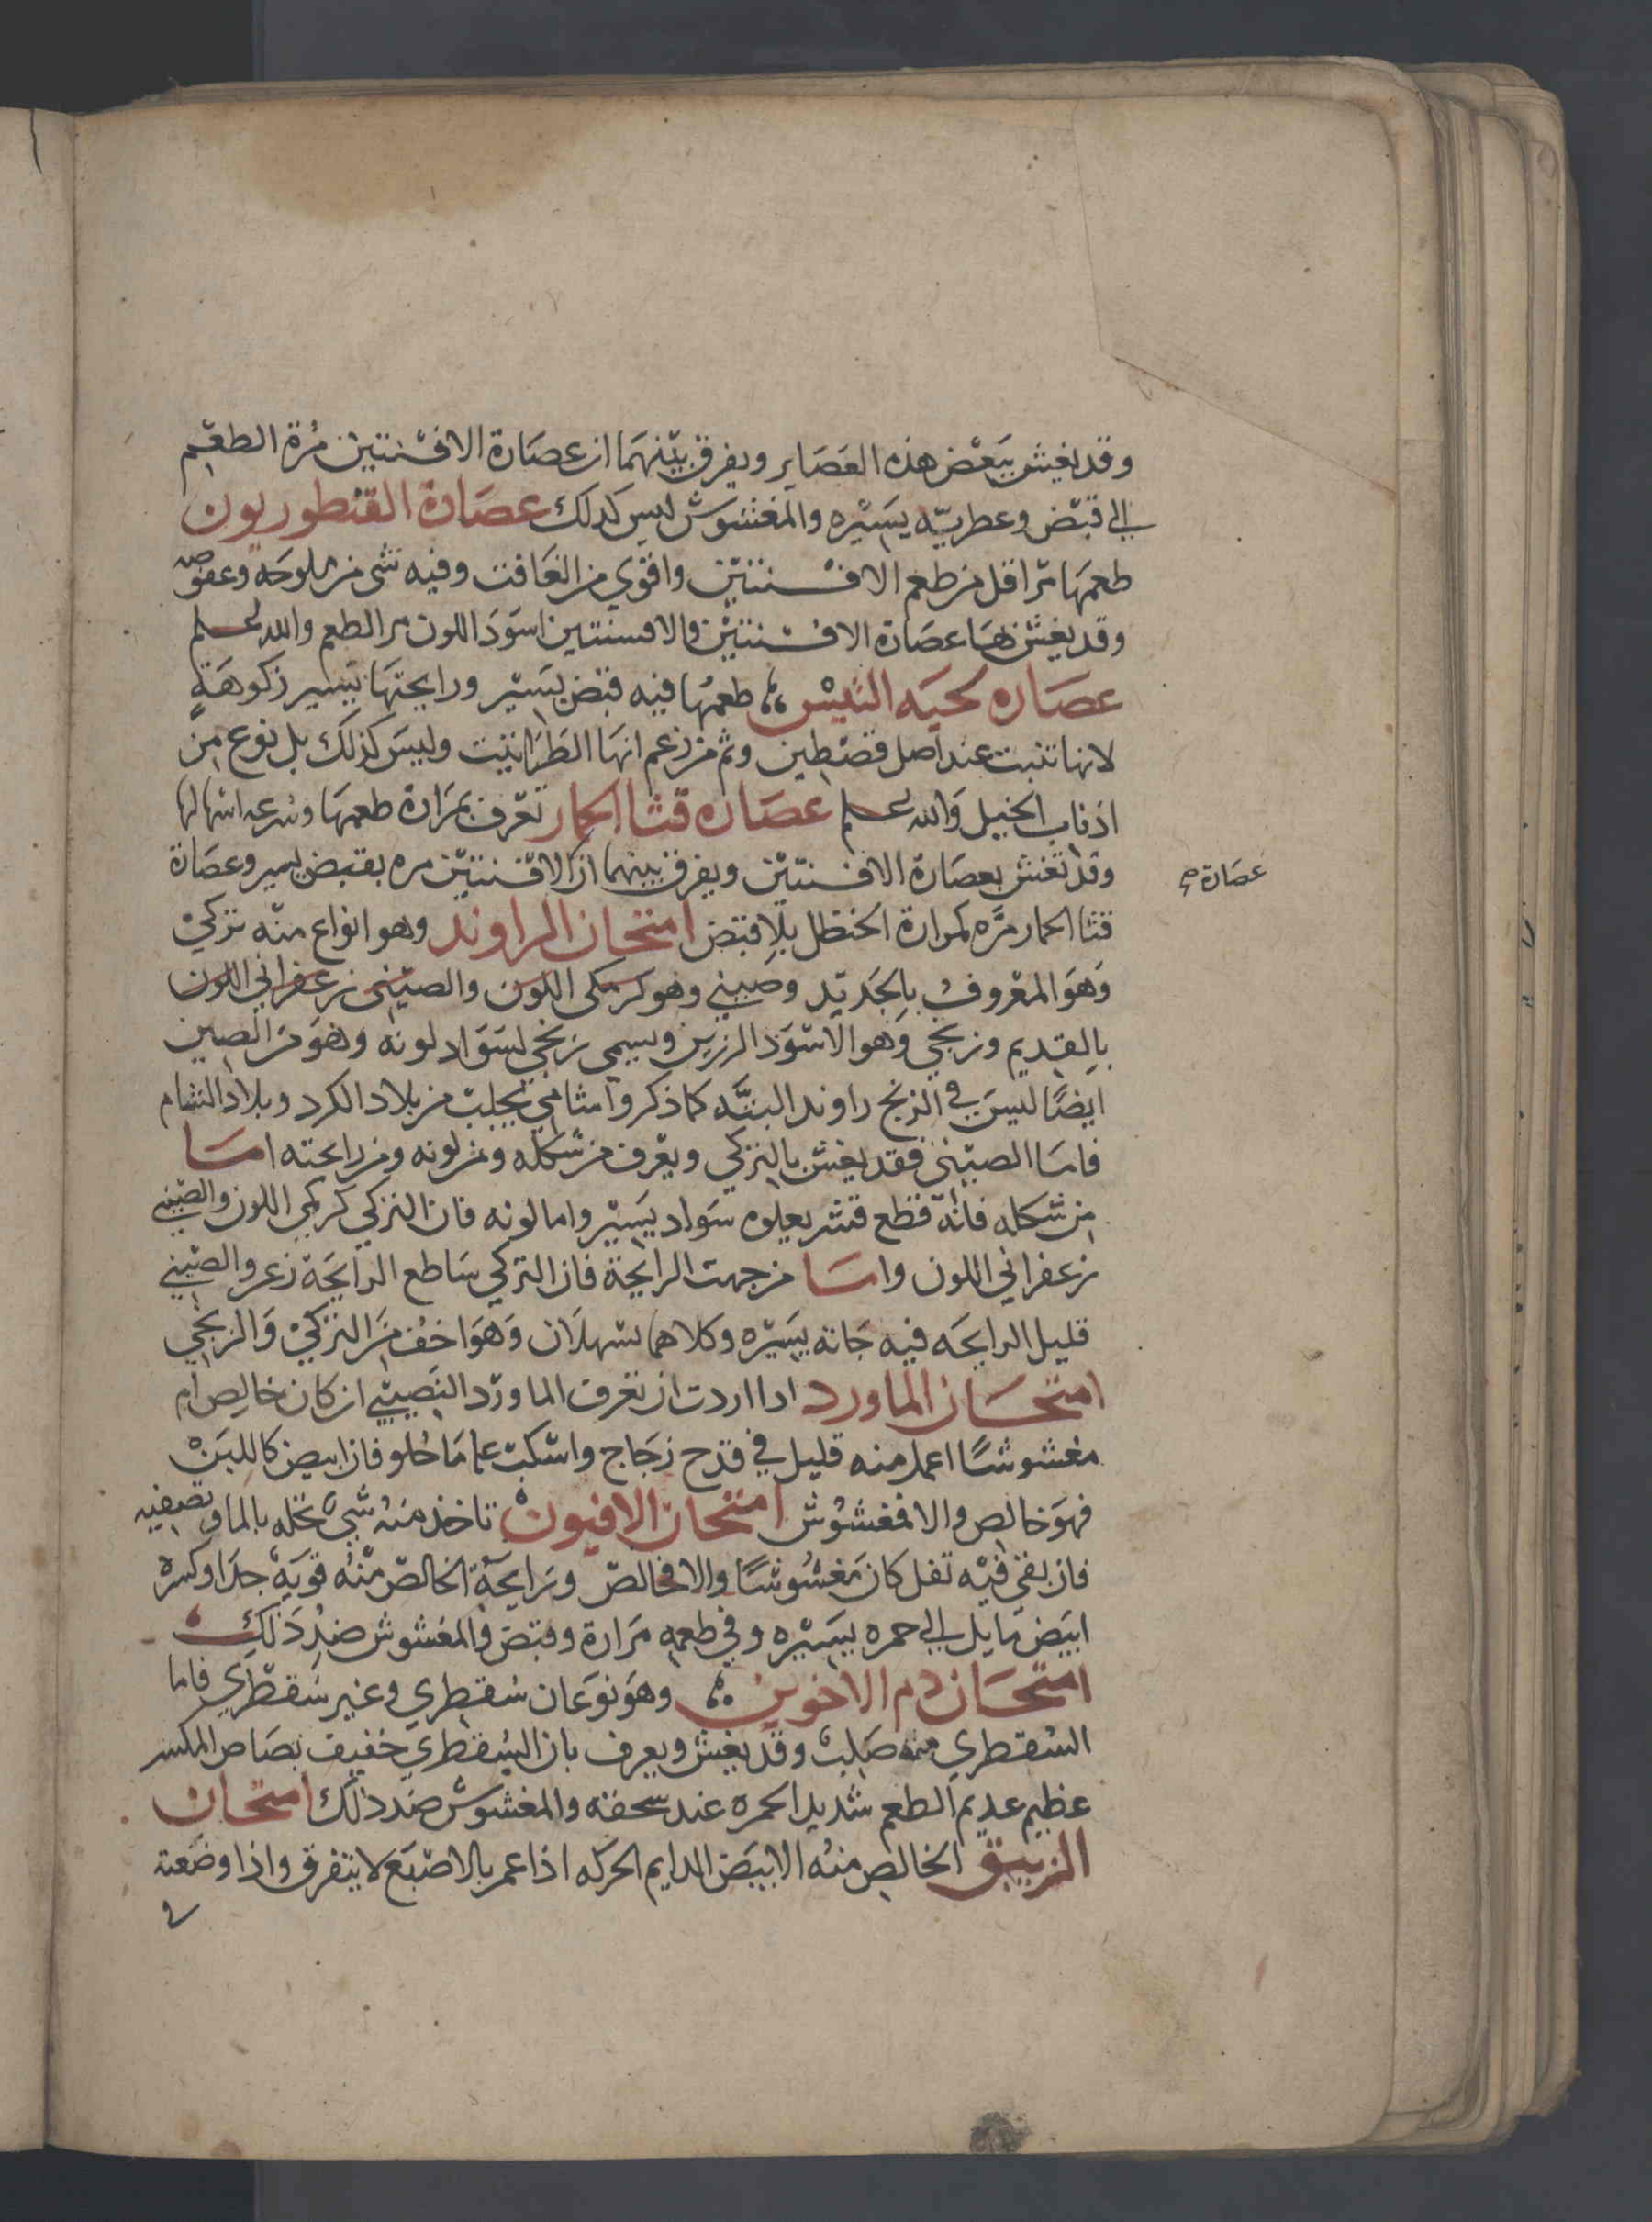 وقد يغش ببعض هذه العصاير ويفرق بينهما ان عصارة الافسنتين مرة الطعم
الى قبض وعطريه يسيره والمغشوش ليس كدلك عصارة القنطوريون
طعمها مر اقل من طعم الافسنتين واقوي من الغافت وفيه شى من ملوحه وعفوصه
وقد يغش بها عصارة الافسنتين والافسنتين اسود اللون مر الطعم والله اعلم
عصاره لحيه التيس طعمها فيه قبض يسير ورايحتها يسير زكوهة
لانها تنبت عند اصل قصطين وثم من زعم انها الطراثيث وليس كذلك بل نوع من
اذناب الخيل والله اعلم عصاره قثا الحمار تعرف بمرارة طعمها وسرعه اسهالها
وقد تغش بعصارة الافسنتين ويفرق بينهما ان الافسنتين مره بقبض يسير وعصارة
عصارة صح
قثا الحمار مره كمرارة الحنظل بلا قبض امتحان الراوند وهو انواع منه تركي
وهو المعروف بالجديد وصيني وهو كرمكى اللون والصينى زعفراني اللون
بالقديم وزنجي وهو الاسود الرزين ويسمى زنجي لسواد لونه وهو من الصين
ايضا ليس في الزنج راوند البته كما ذكروا شامي يجلب من بلاد الكرد وبلاد الشام
فاما الصيني فقد يغش بالتركي ويعرف من شكله ومن لونه ومن رايحته اما
من شكله فانه قطع قشر يعلوه سواد يسير واما لونه فان التركي كركمي اللون والصيني
زعفراني اللون واما من جهت الرايحة فان التركي ساطع الرايحة زعر والصيني
قليل الرايحه فيه جاته يسيره وكلاهما يسهلان وهو اخف من التركي والزنجي
امتحان الماورد ادا اردت ان تعرف الماورد النصيبي ان كان خالص ام
مغشوشا اعمل منه قليل في قدح زجاج واسكب عليه ما حلو فان ابيض كاللبن
فهو خالص والا فمغشوش امتحان الافيون تاخذ منه شي تحله بالما وتصفيه
فان بقى فيه تفل كان مغشوشا والا فخالص ورايحة الخالص منه قويه جدا وكسره
ابيض مايل الى حمره يسيره وفي طعمه مرارة وقبض والمغشوش ضد ذلك
امتحان دم الاخوين وهو نوعان سقطري وغير سقطري فاما
السقطري منه صلب وقد يغش ويعرف بان السقطري خفيف بصاص المكسر
عظيم عديم الطعم شديد الحمره عند سحقه والمغشوش ضد ذلك امتحان
الزيبق الخالص منه الابيض الدايم الحركه اذا عمر بالاصبع لا يتفرق واذا وضعته